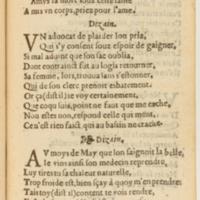 A mis vn corps, priez pour l'ame.
Dizain.
VN aduocat de plaider son pris,
Qui s'y consent sous espoir de gaigner,
Si mal aduint que son sac oublia,
Dont contrainct fut au logis retourner
Sa femme, lors, trouua sans s'estonner,
Qui de son clerc prenoit esbatement.
Or ça (dist il) ie voy certainement,
Que coqu suis, point ne faut que me cache,
Non est non, respond celle qui ment,
Ce n'est rien faict qui au bassin ne crache.
Dizain.
AV moys de May que lon saignoit la belle,
le vins ainsi son medecin reprendre,
Luy tires tu sa chaleur naturelle,
Trop froide est, bien sçay à quoy m'en prendre
Tais toy (dist il) content te voy rendre,